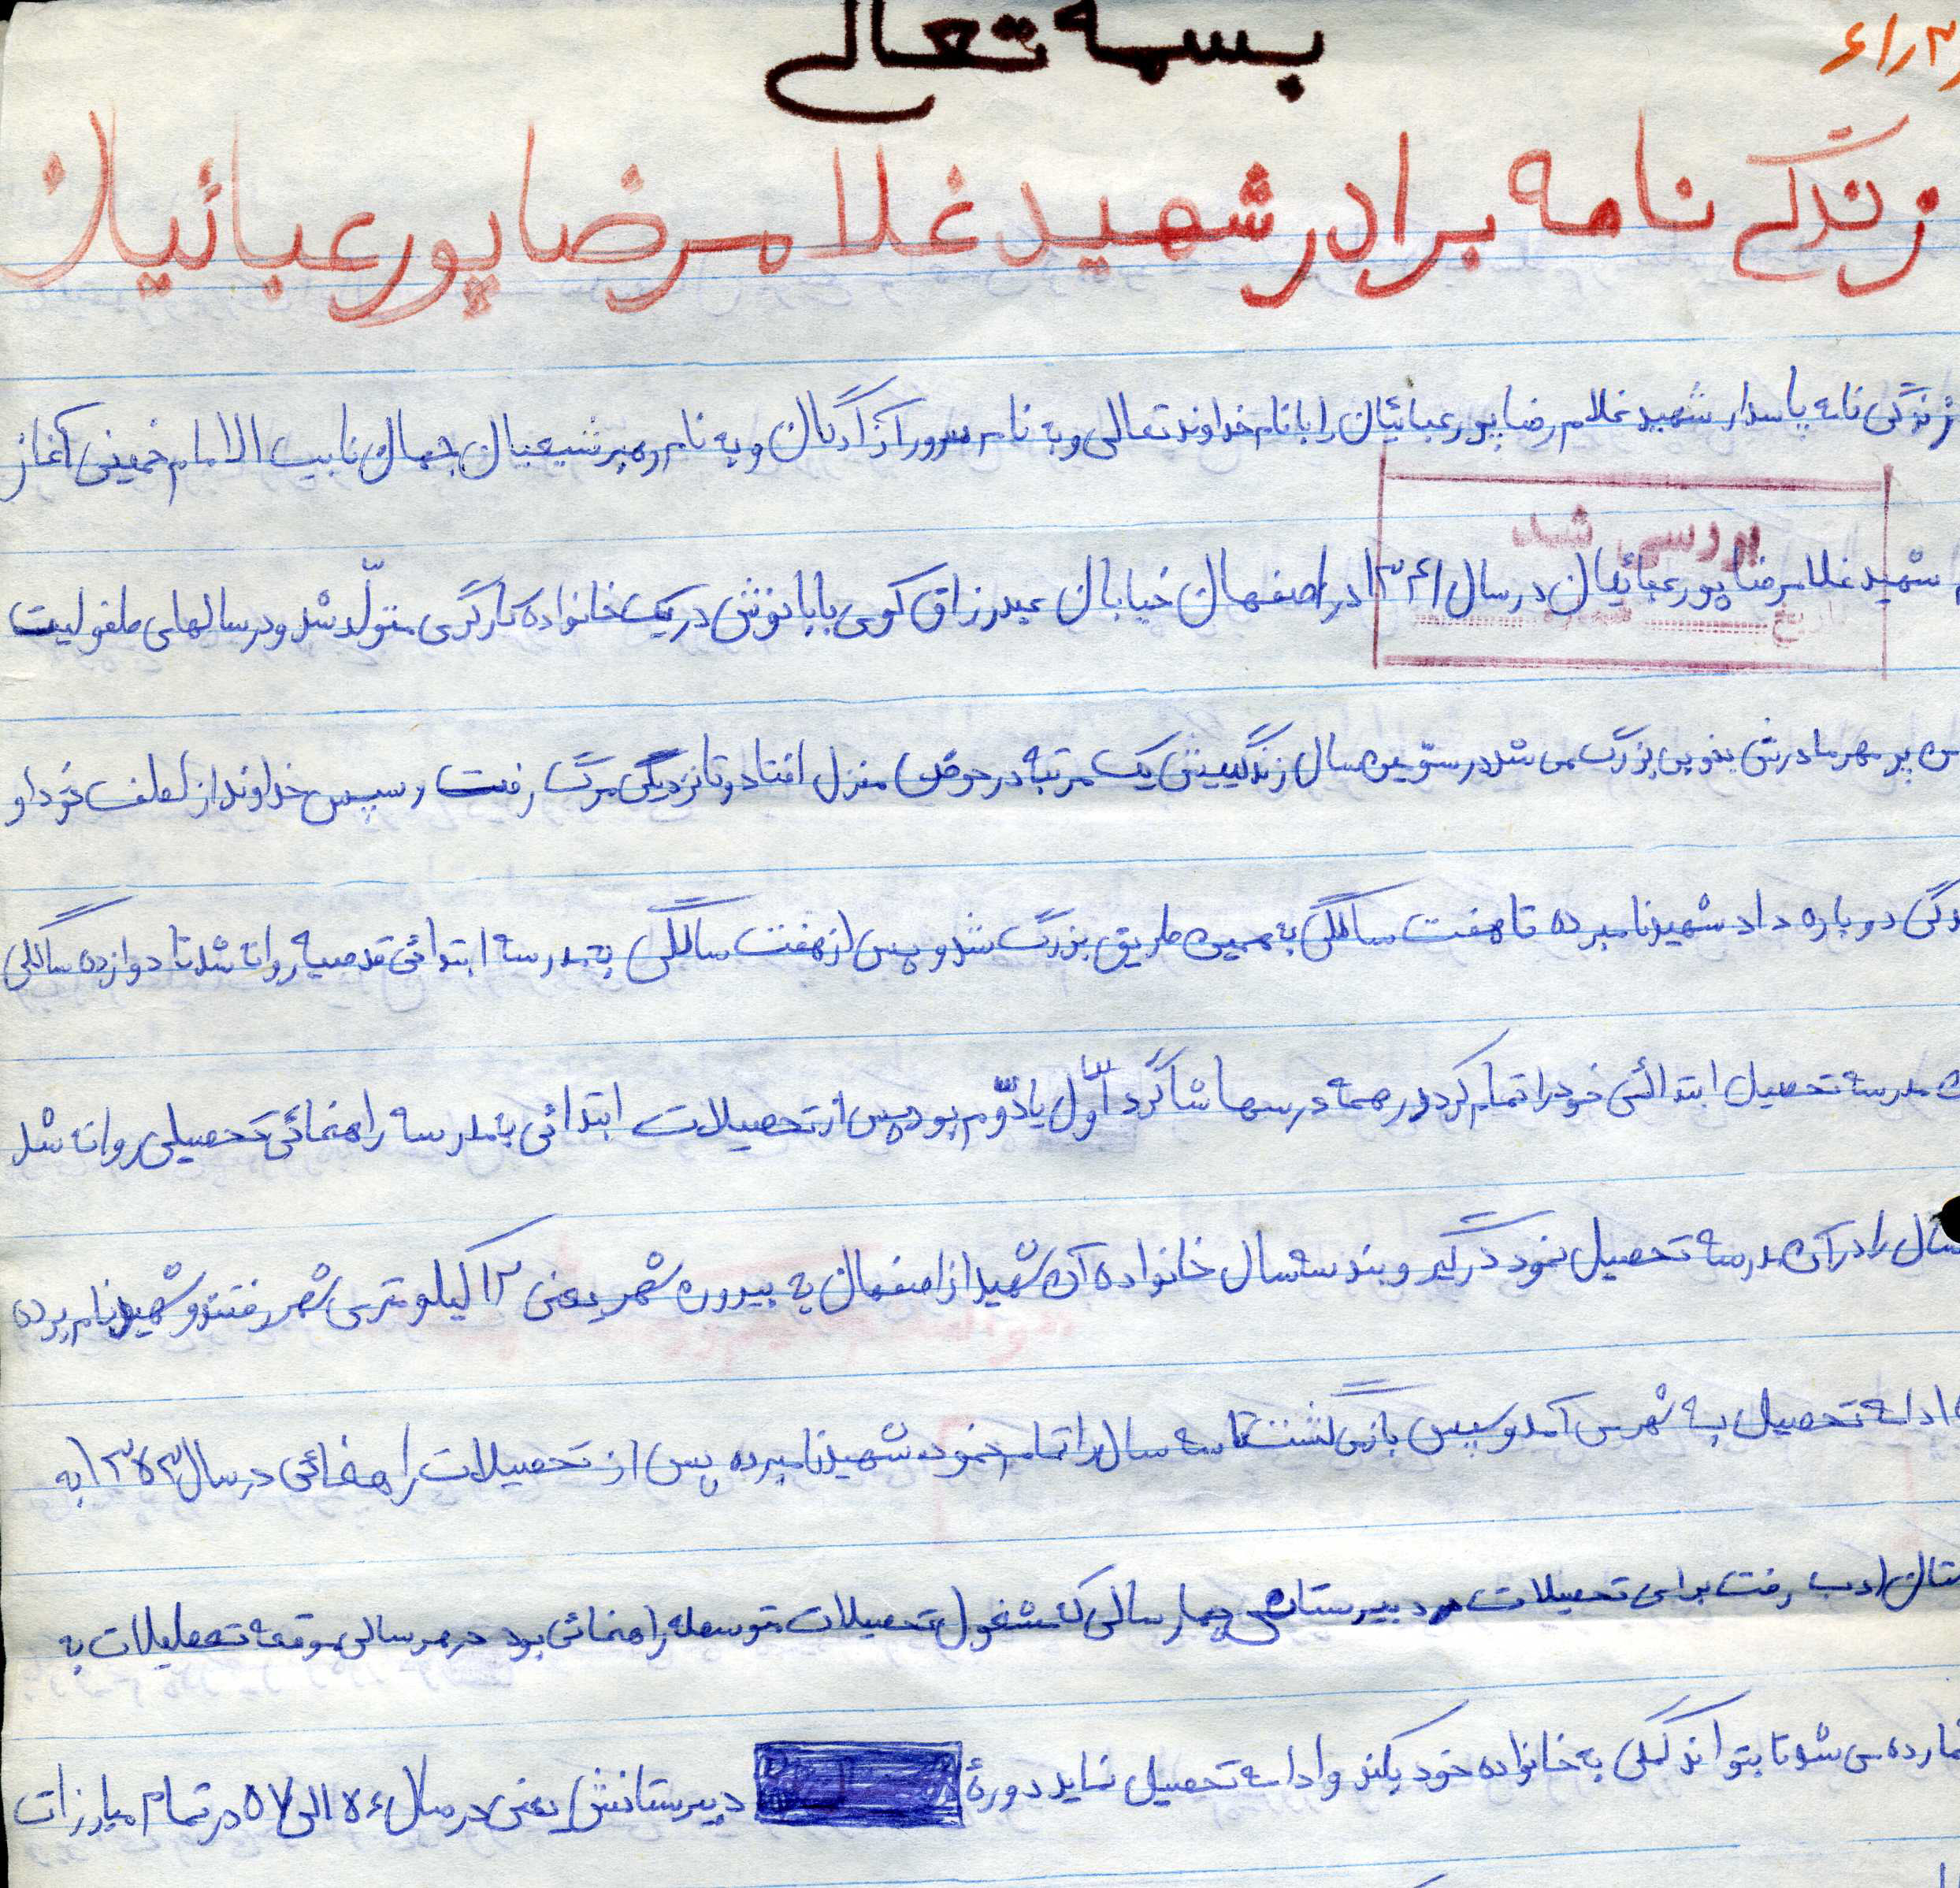 بسمه تعالی
زندگی نامه برادر شهید غلامرضا پور عبائیان
زندگی نامه پاسدار شهید غلامرضا پور عبائیان را با نام خداوند تعالی و به نام سرور آزادگان و به نام رهبر شیعیان جهان نایب الامام خمینی آغاز
بررسی شد
تاریخ
شهید غلامرضا پور عبائیان در سال ۱۳۴۱ در اصفهان خیابان عبدرزاق کوی بابانوش در یک خانواده کارگری متولّد شد و در سالهای طفولیت
پر مهر مادرش بخوبی بزرگ می شد در سوّمین سال زندگییش یک مرتبه در حوض منزل افتاد و تا نزدیگی مرگ رفت و سپس خداوند از لطف خود او
دوباره داد شهید نامبرده تا هفت سالگی به همین طریق بزرگ شد و پس از هفت سالگی به مدرسه ابتدائی قدصیه روانه شد تا دوازده سالگی
مدرسه تحصیل ابتدائی خود را تمام کرد در همه درسها شاگرد اوّل یا دوّم بود پس از تحصیلات ابتدائی به مدرسه راهنمائی تحصیلی روانه شد
سال را در آن مدرسه تحصیل نمود در گیر و بند سه سال خانواده آن شهید از اصفهان به بیرون شهر یعنی ۱۲ کیلومتری شهر رفتند و شهید نام برده
ادامه تحصیل به شهر می آمد و سپس باز می گشت تا سه سال را تمام نمود شهید نامبرده پس از تحصیلات راهنمائی در سال ۱۳۵۳ به
ادب رفت برای تحصیلات دبیرستانی چهار سالی که مشغول تحصیلات متوسطه راهنمائی بود در هر سالی موقعه تعطیلات به
می شد تا بتواند کمکی به خانواده خود بکند و ادامه تحصیل نماید دورهٔ دبیرستانش یعنی در سال ۵۶ الی ۵۷ در تمام مبارزات